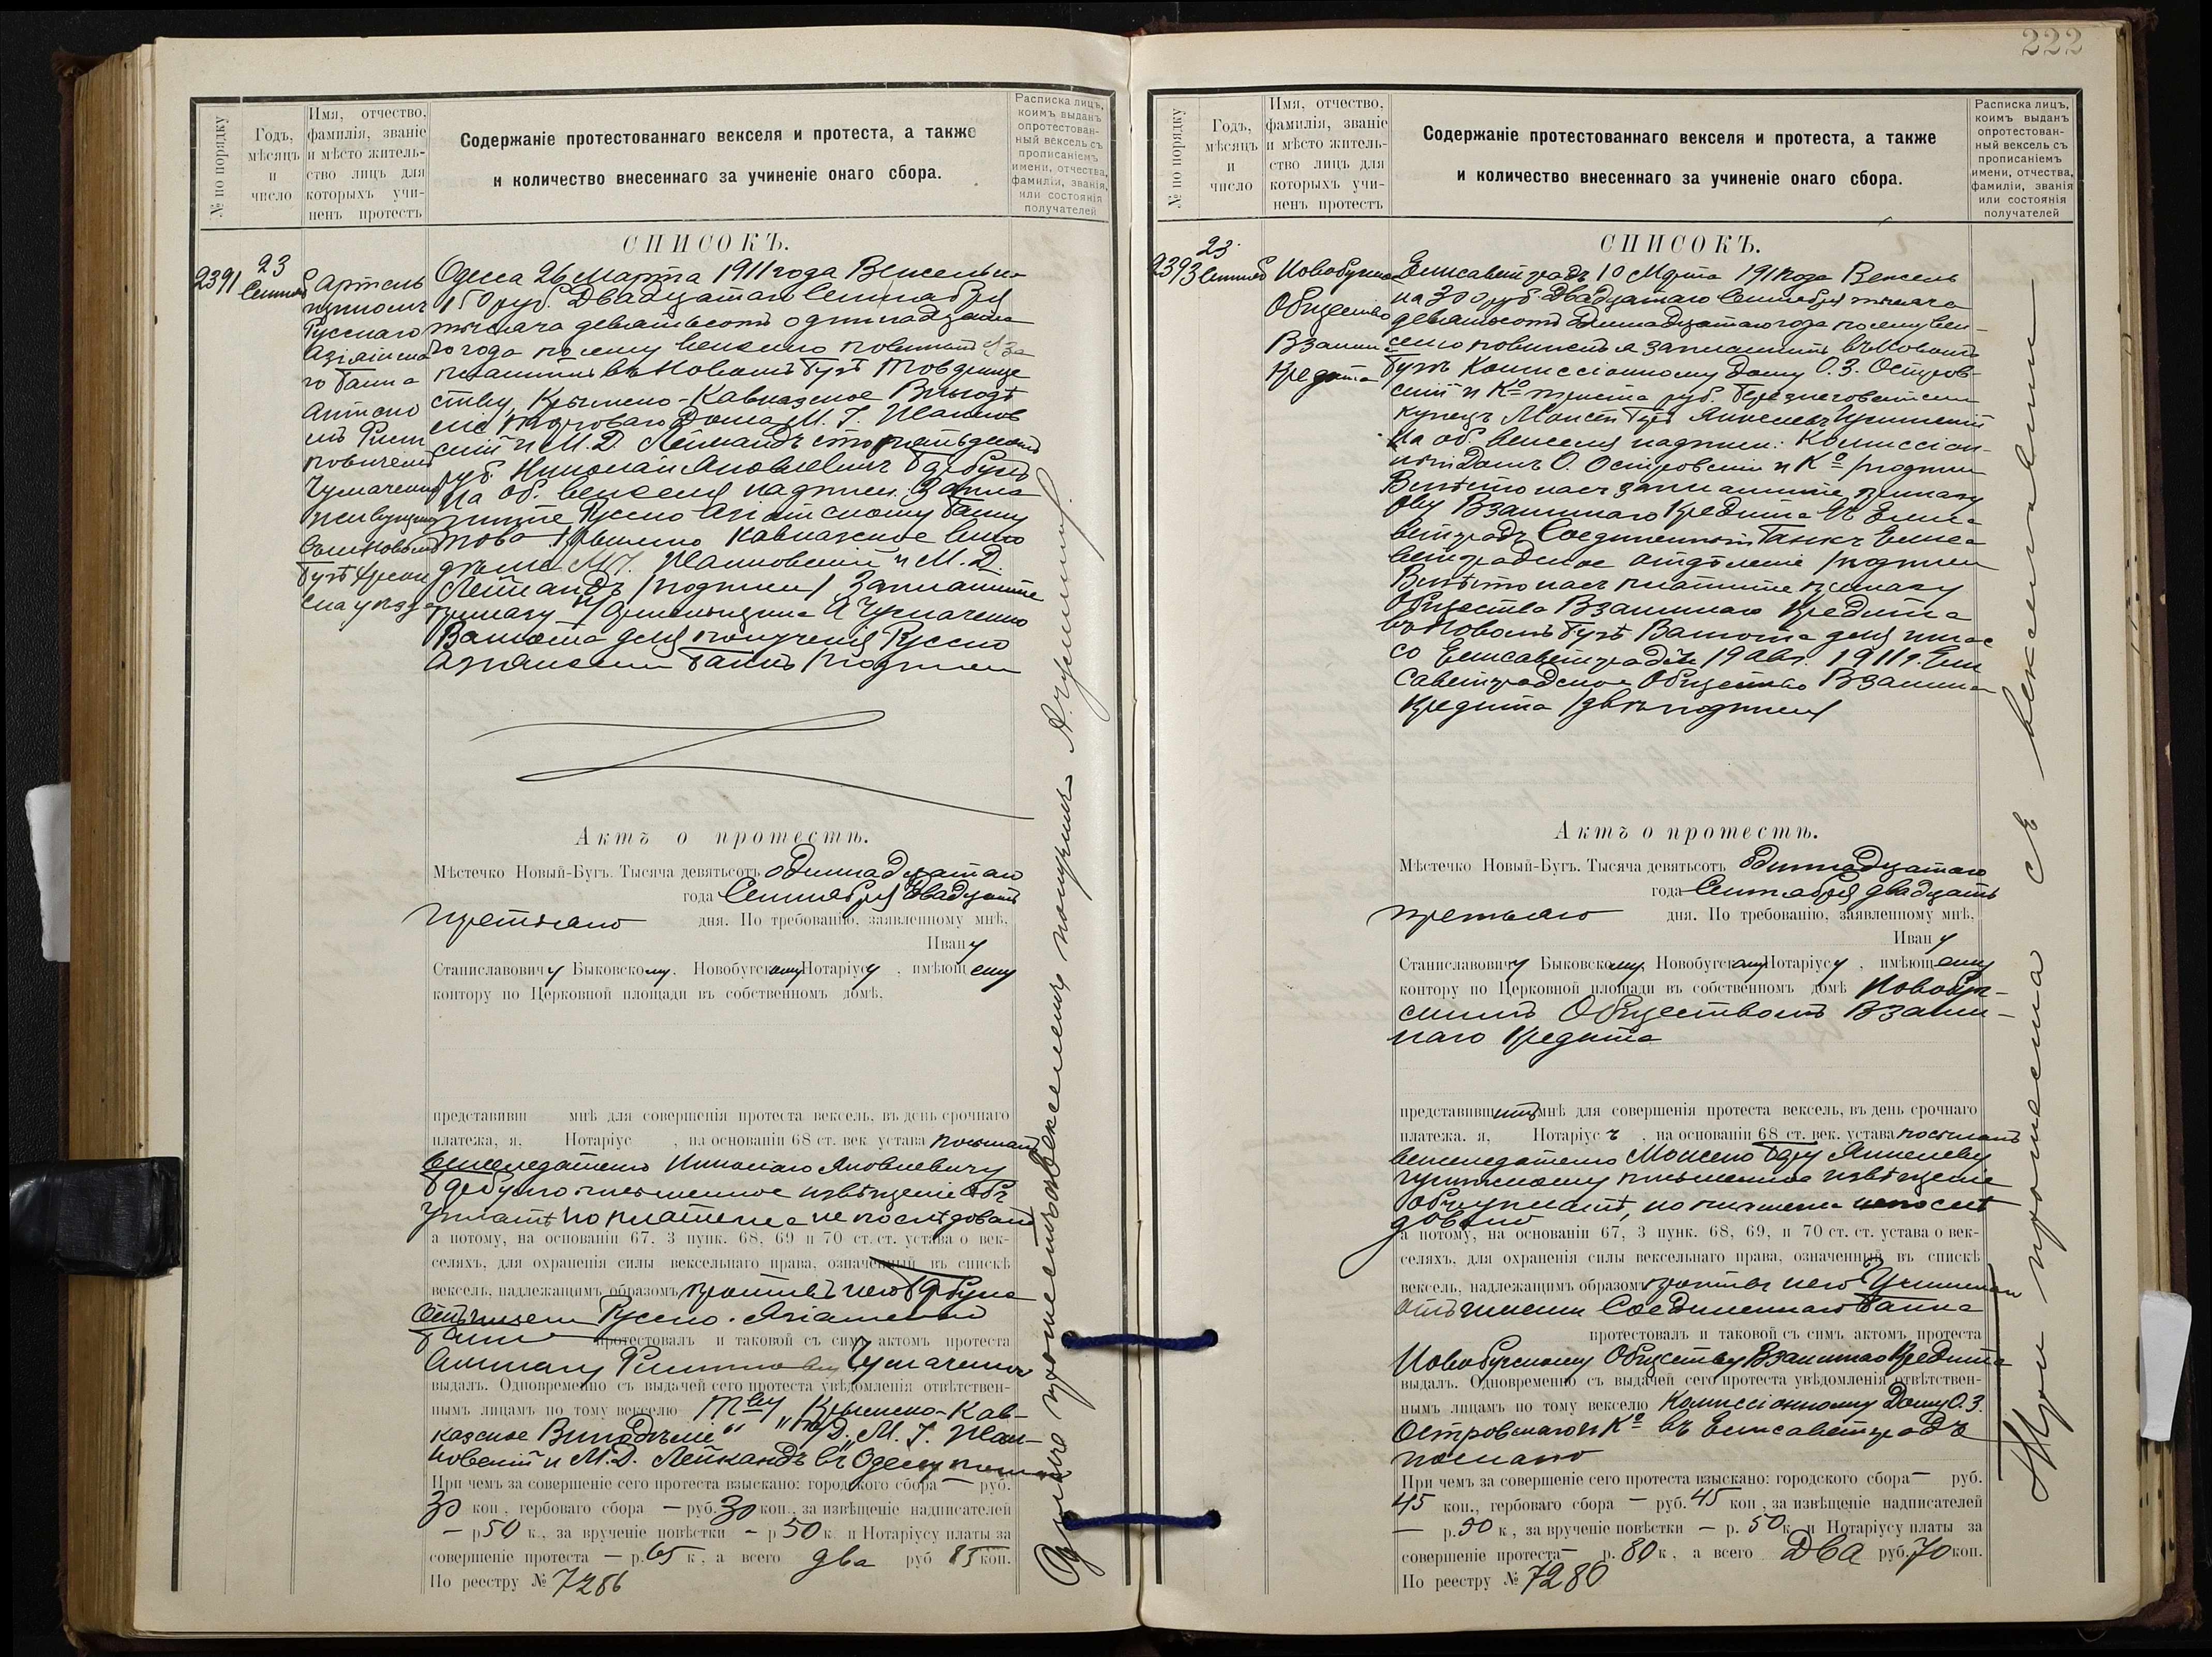 222
№ по порядку
Годъ,
мѣсяцъ
и
число
Имя, отчество,
фамилія, званіе
и мѣсто житель-
ство лицъ для
которыхъ учи-
ненъ протестъ
Содержаніе протестованнаго векселя и протеста, а также
и количество внесеннаго за учиненіе онаго сбора.
Расписка лицъ,
коимъ выданъ
опротестован-
ный вексель съ
прописаніемъ
имени, отчества,
фамиліи, званія,
или состоянія
получателей
СПИСОКЪ.
2391
23
Артель
Русскаго
го банка
Одесса 26 Марта 1911 года Вексель на
150 руб. Двадцатаго Сентября
тысяча девятьсотъ одиннадцата
го года по сему векселю повиненъ я за
платить въ Новомъ Бугѣ Товарище
ству, Крымско-Кавказское Винодѣ
ліе, Торговаго Дома М. І.
и М. Д. сто пятьдесятъ
руб. Николай Яковлевичъ
На об. векселя надписи: Запла
тите Русско Азіатскому банку
Крымско Кавказское Вино
и М. Д.
/подписи/ Заплатите
приказу
Валюта для полученія Русско
Азіатскій банкъ /подписи
Актъ о протестѣ.
Мѣстечко Новый-Бугъ. Тысяча девятьсотъ одиннадцатаго
года Сентября двадцать
третьяго дня. По требованію, заявленному мнѣ,
Ивану
Станиславовичу Быковскому, Новобугскому Нотаріусу , имѣющему
контору по Церковной площади въ собственномъ домѣ,
представивш мнѣ для совершенія протеста вексель, въ день срочнаго
платежа, я, Нотаріус , на основаніи 68 ст. век устава посылалъ
векселедателю Николаю Яковлевичу
письменное извѣщеніе объ
уплатѣ но платежа не послѣдовало
а потому, на основаніи 67, 3 пунк. 68, 69 и 70 ст. ст. устава о век-
селяхъ, для охраненія силы вексельнаго права, означенный въ спискѣ
вексель, надлежащимъ образомъ противъ него
Русско-Азіатскаго
банка протестовалъ и таковой съ симъ актомъ протеста
выдалъ. Одновременно съ выдачей сего протеста увѣдомленія отвѣтствен-
нымъ лицамъ по тому векселю Т-ву „Крымско-Кав-
казское Винодѣліе“ „Т/Д. М. І.
и М. Д. въ Одессу
При чемъ за совершеніе сего протеста взыскано: городского сбора — руб.
30 коп., гербоваго сбора — руб. 30 коп., за извѣщеніе надписателей
— р. 50 к., за врученіе повѣстки — р. 50 к. и Нотаріусу платы за
совершеніе протеста — р. 65 к., а всего два руб 85 коп.
По реестру №
№ по порядку
Годъ,
мѣсяцъ
и
число
Имя, отчество,
фамилія, званіе
и мѣсто житель-
ство лицъ для
которыхъ учи-
ненъ протестъ
Содержаніе протестованнаго векселя и протеста, а также
и количество внесеннаго за учиненіе онаго сбора.
Расписка лицъ,
коимъ выданъ
опротестован-
ный вексель съ
прописаніемъ
имени, отчества,
фамиліи, званія
или состоянія
получателей
СПИСОКЪ.
2393
23
Общество
Кредита
Елисаветградъ 10 Марта Вексель
на 300 руб. Двадцатаго Сентября тысяча
девятьсотъ одиннадцатаго года по сему век-
селю повиненъ я заплатить въ Новомъ
Бугѣ Комиссіонному Дому О. З. Остров-
скій и Ко триста руб.
купецъ
На об. векселя надписи: Комиссіон-
ный Домъ О. Островскій и Ко /подпись
Вмѣсто насъ заплатите приказу
Взаимнаго Кредита
Соединенный Банкъ Елиса
ветградское отдѣленіе /подписи
Вмѣсто насъ платите приказу
Общества Взаимнаго Кредита
въ Новомъ Бугѣ Валюта для инкас
со Елисаветградъ 19 Авг. 1911 г. Ели
саветградское Общество Взаимна
Кредита /двѣ подписи/
Актъ о протестѣ.
Мѣстечко Новый-Бугъ. Тысяча девятьсотъ одиннадцатаго
года Сентября двадцать
третьяго дня. По требованію, заявленному мнѣ,
Ивану
Станиславовичу Быковскому, Новобугскому Нотаріусу , имѣющему
контору по Церковной площади въ собственномъ домѣ Новобуг-
скимъ Обществомъ Взаим-
наго Кредита
представившимъ мнѣ для совершенія протеста вексель, въ день срочнаго
платежа. я, Нотаріусъ , на основаніи 68 ст. век. устава посылалъ
векселедателю
письменное извѣщеніе
объ уплатѣ, но платежа не послѣ
довало
а потому, на основаніи 67, 3 пунк. 68, 69, и 70 ст. ст. устава о век-
селяхъ, для охраненія силы вексельнаго права, означенный въ спискѣ
вексель, надлежащимъ образомъ противъ него
Соединеннаго Банка
протестовалъ и таковой съ симъ актомъ протеста
Новобугскому Обществу Взаимнаго Кредита
выдалъ. Одновременно съ выдачей сего протеста увѣдомленія отвѣтствен-
нымъ лицамъ по тому векселю Комиссіонному Дому О. З.
Островскаго и Ко въ Елисаветградъ
послано
При чемъ за совершеніе сего протеста взыскано: городского сбора — руб.
45 коп., гербоваго сбора — руб. 45 коп., за извѣщеніе надписателей
— р. 50 к., за врученіе повѣстки — р. 50 к. и Нотаріусу платы за
совершеніе протеста — р. 80 к., а всего Два руб. 70 коп.
По реестру № 7280
Три протеста съ векселями